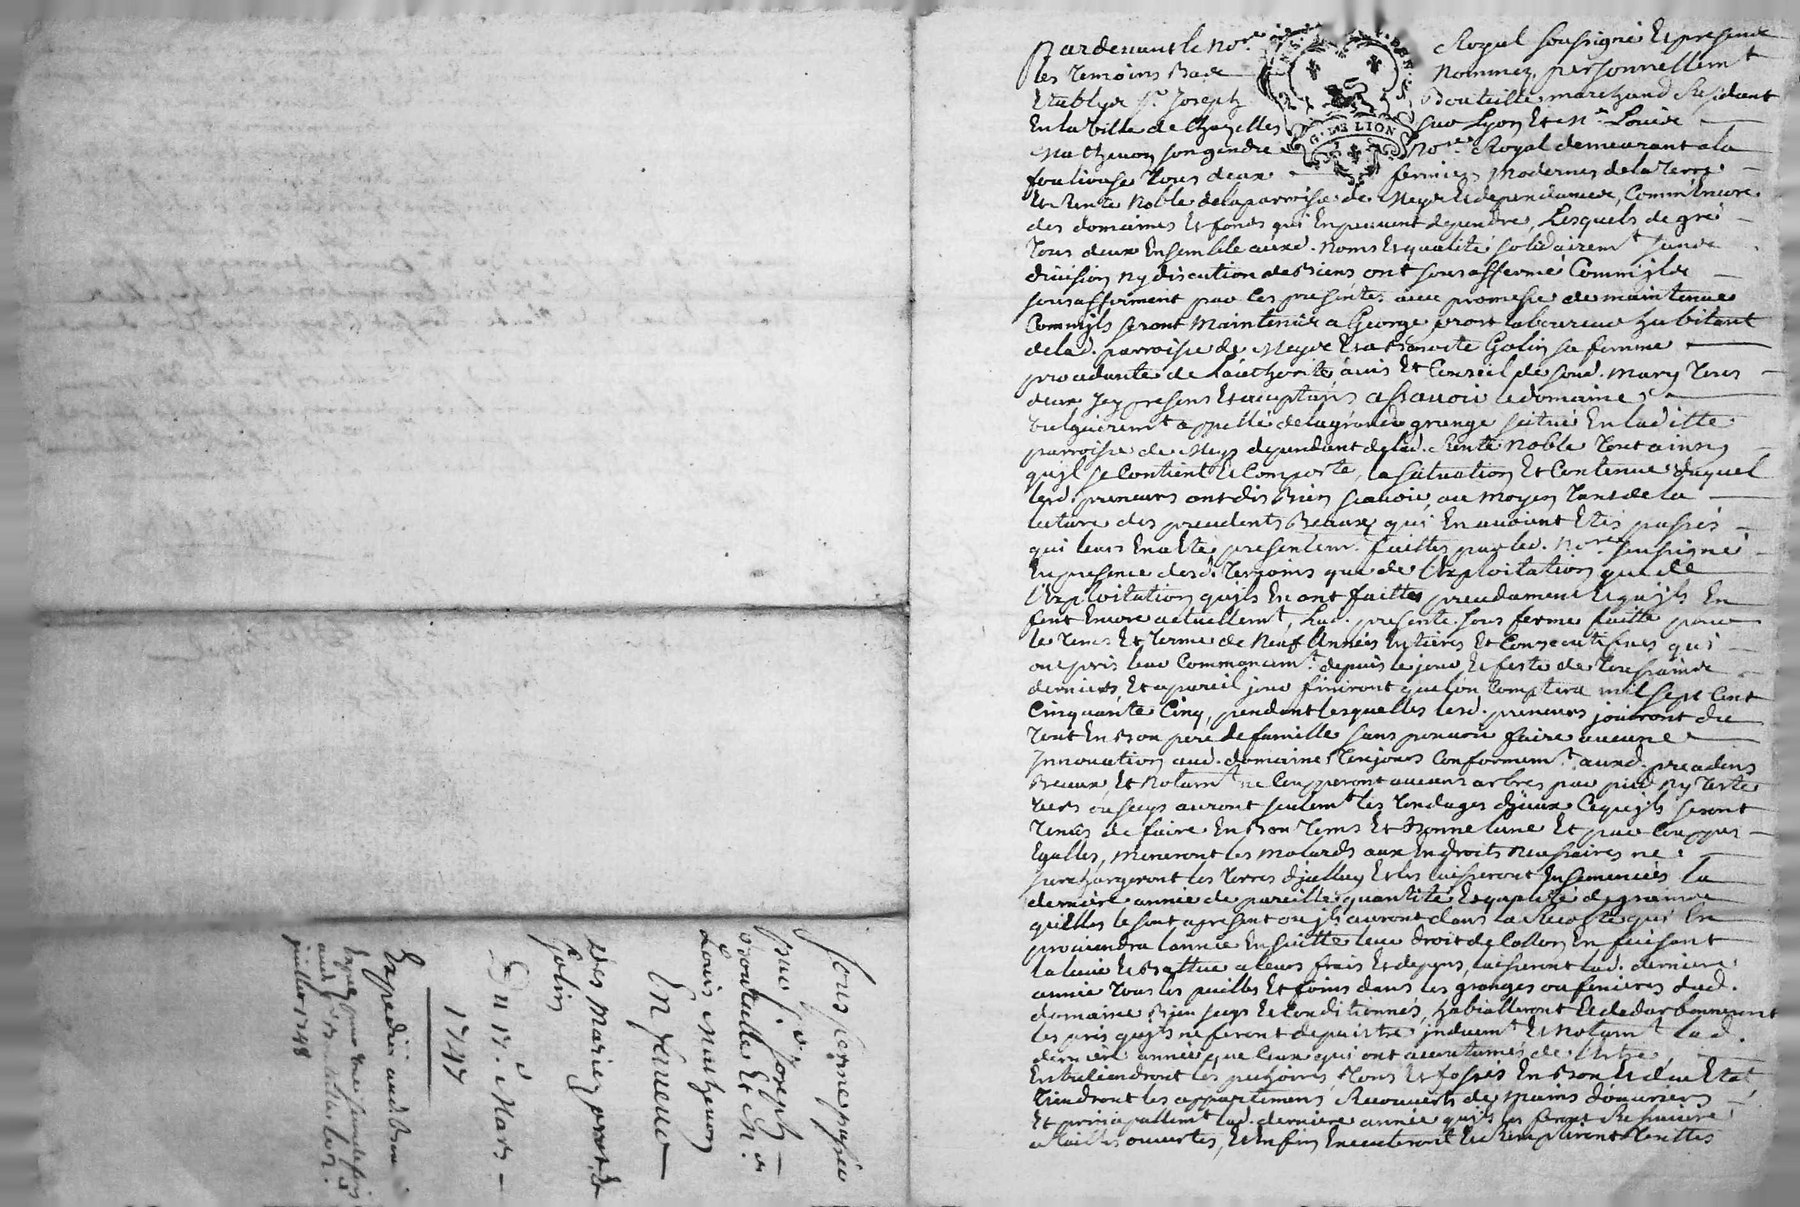 Sous ferme passée
par Sr. Joseph
Bouteille Et Me.
Louis Mathevon
En faveur
des Mariez prost &
Golin
Du 17.e Mars
1747
Expedié aud. Bou
Expedié pour une seconde fois
juillet 1748
Pardevant le nore. Royal soussigné Et presence
les temoins Bas nommez, personnellemt
Etablys Sr. Joseph Bouteille marchand Residant
En la Ville de Chazelles sur Lyon Et Me. Louis
Mathevon son gendre nore. Royal demeurant a la
fouliouse tous deux fermiers modernes de la terre
G. DE LION
Et Rente Noble de la parroisse de Meys Et dependances, Comm'Encore
des domaines Et fonds qui En peuvent dependre, Lesquels de gré
tous deux Ensemble auxd. noms Et qualité solidairemt sans
division ny discution de Biens ont sousaffermé Comm'ils
sousafferment par les presentes avec promesse de maintenue
Comm'ils seront Maintenus a George prost laboureur habitant
de lad. parroisse de Meys Et a Golin sa femme
procedante de l'authorité avis Et Conseil de soud. mary tous
deux Icy presens Et acceptans assavoir le domaine
vulguairemt appellé de la grande grange scitué En laditte
parroisse de Meys dependant de lad. Rente Noble tout ainsy
qu'il se Contient Et Comporte, la scituation Et Contenue duquel
lesd. preneurs ont dit Bien sçavoir au moyen tant de la
lecture des precedents Beaux qui En avoient Etés passés
qui leurs En a Eté presentem. faittes par led. nore. soussigné
En presence desd. temoins que de l'Exploitation que de
l'Exploitation qu'ils En ont faittes precedament Et qu'ils En
font Encore actuellemt, Lad. presente sous ferme faitte pour
le tems Et terme de Neuf Années Entieres Et Consecutifves qui
ont pris leur Commancemt depuis le jour Et feste de toussaints
derniers, Et a pareil jour finiront que l'on Comptera mil sept Cent
Cinquante Cinq, pendant lesquelles lesd. preneurs joüiront du
tout En Bon pere de famille sans pouvoir faire aucune
Innovation aud. domaine toujours Conformemt. auxd. precedens
Beaux, Et Notamt ne Coupperont aucuns arbres par pied Ny teste
vers ou secqs auront seulemt les tondages d'jceux Ce qu'ils seront
tenus de faire En Bon tems Et Bonne lune Et par Couppes
Egalles, meneront les molards aux Endroits necessaires ne
surchargeront les terres d'jcelluy Et les laisseront Ensemencées la
derniere année de pareille quantité Et qualité de graines
qu'Elles le sont apresent ou jls auront dans la Recolte qui En
proviendra l'année Ensuitte leur droit de Collon En faisant
la levée Et Battue a leurs frais Et depens, laisseront lad. derniere
année tous les pailles Et foins dans les granges ou fenieres dud.
domaine Bien secqs Et Conditionnés,
les prés qu'ils ne feront depaistre jnduemt Et Notamt lad.
derniere année que Ceux qui ont accoutumés de l'Estre,
Entretiendront les pechoires, Et fossés En Bon Et due Etat
tiendront les appartemens Recouverts de mains d'ouvriers
Et principallemt lad. derniere année
a tailles ouvertes, Et Enfin Executeront Et Rempliront touttes